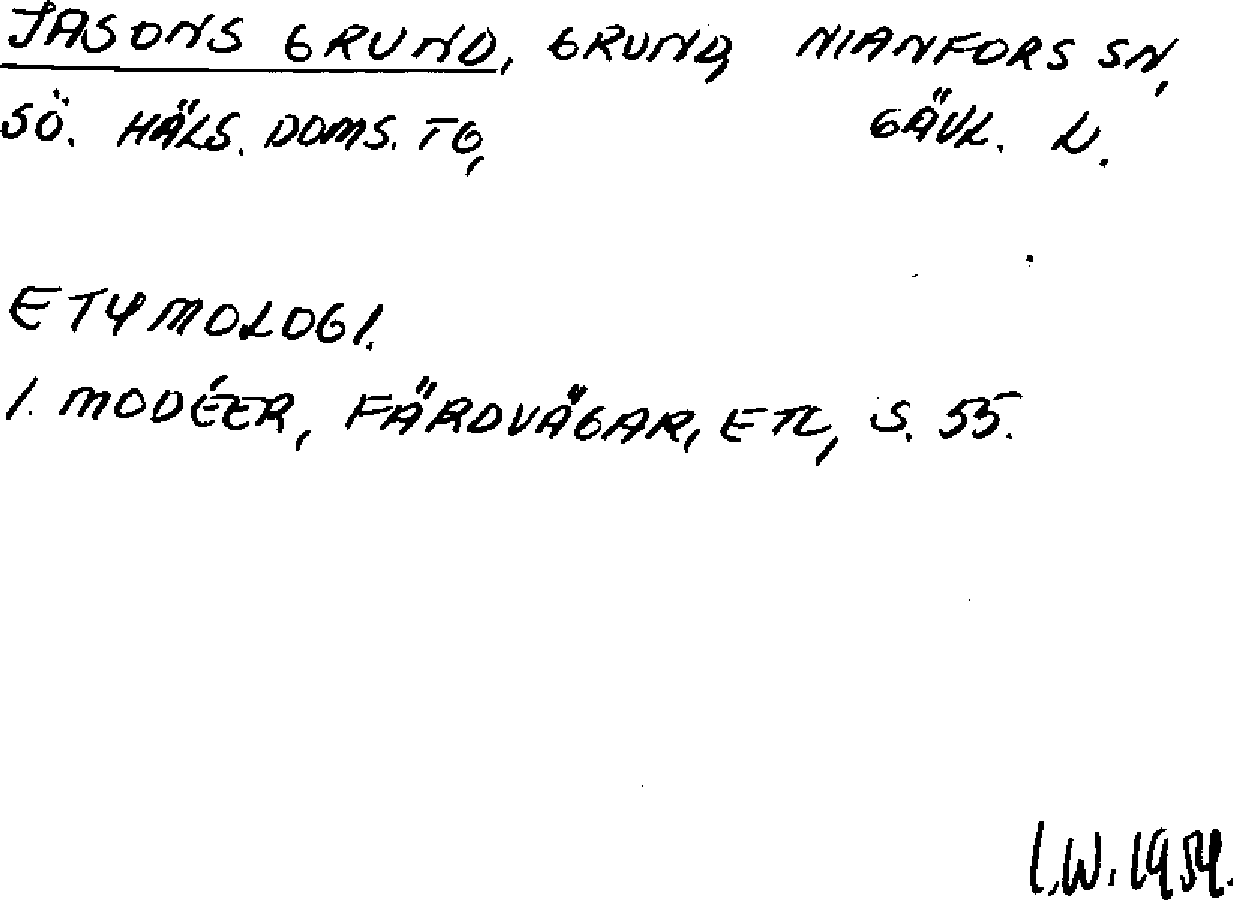 JASONS GRUND, GRUND, NIANFORS SN,
SÖ. HÄLS. DOMS. TG, GÄVL. L.
ETYMOLOGI.
I. MODÉER, FÄRDVÄGAR, ETC, S. 55.
I.W. 1954.